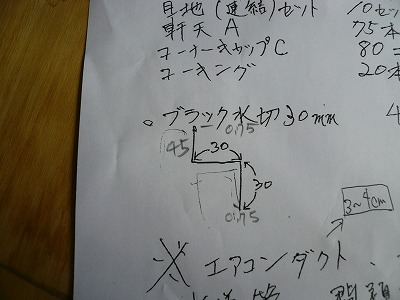 見地(連結)セット 10セッ
軒天A 75本
コーナーキャップC 80コ
コーキング 20本
。ブラック水切30mm 4
0.75
45 30
30
0.75
3~4cm
※ エアコンダクト、